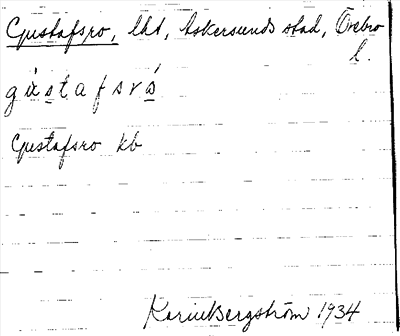 Gustafsro, lht, Askersunds stad, Örebro
l.
gùstafsró
Gustafsro kb
Karin Bergström 1934